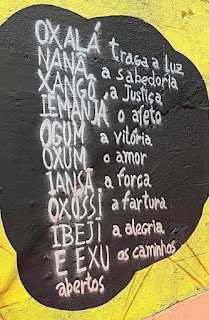 OXALÁ traga a Luz
NANÃ, a sabedoria
XANGÔ, a Justiça
IEMANJÁ o afeto
OGUM a vitória
OXUM o amor
IANSÃ, a força
OXOSSI a fartura
IBEJI a alegria
E EXU os caminhos
abertos